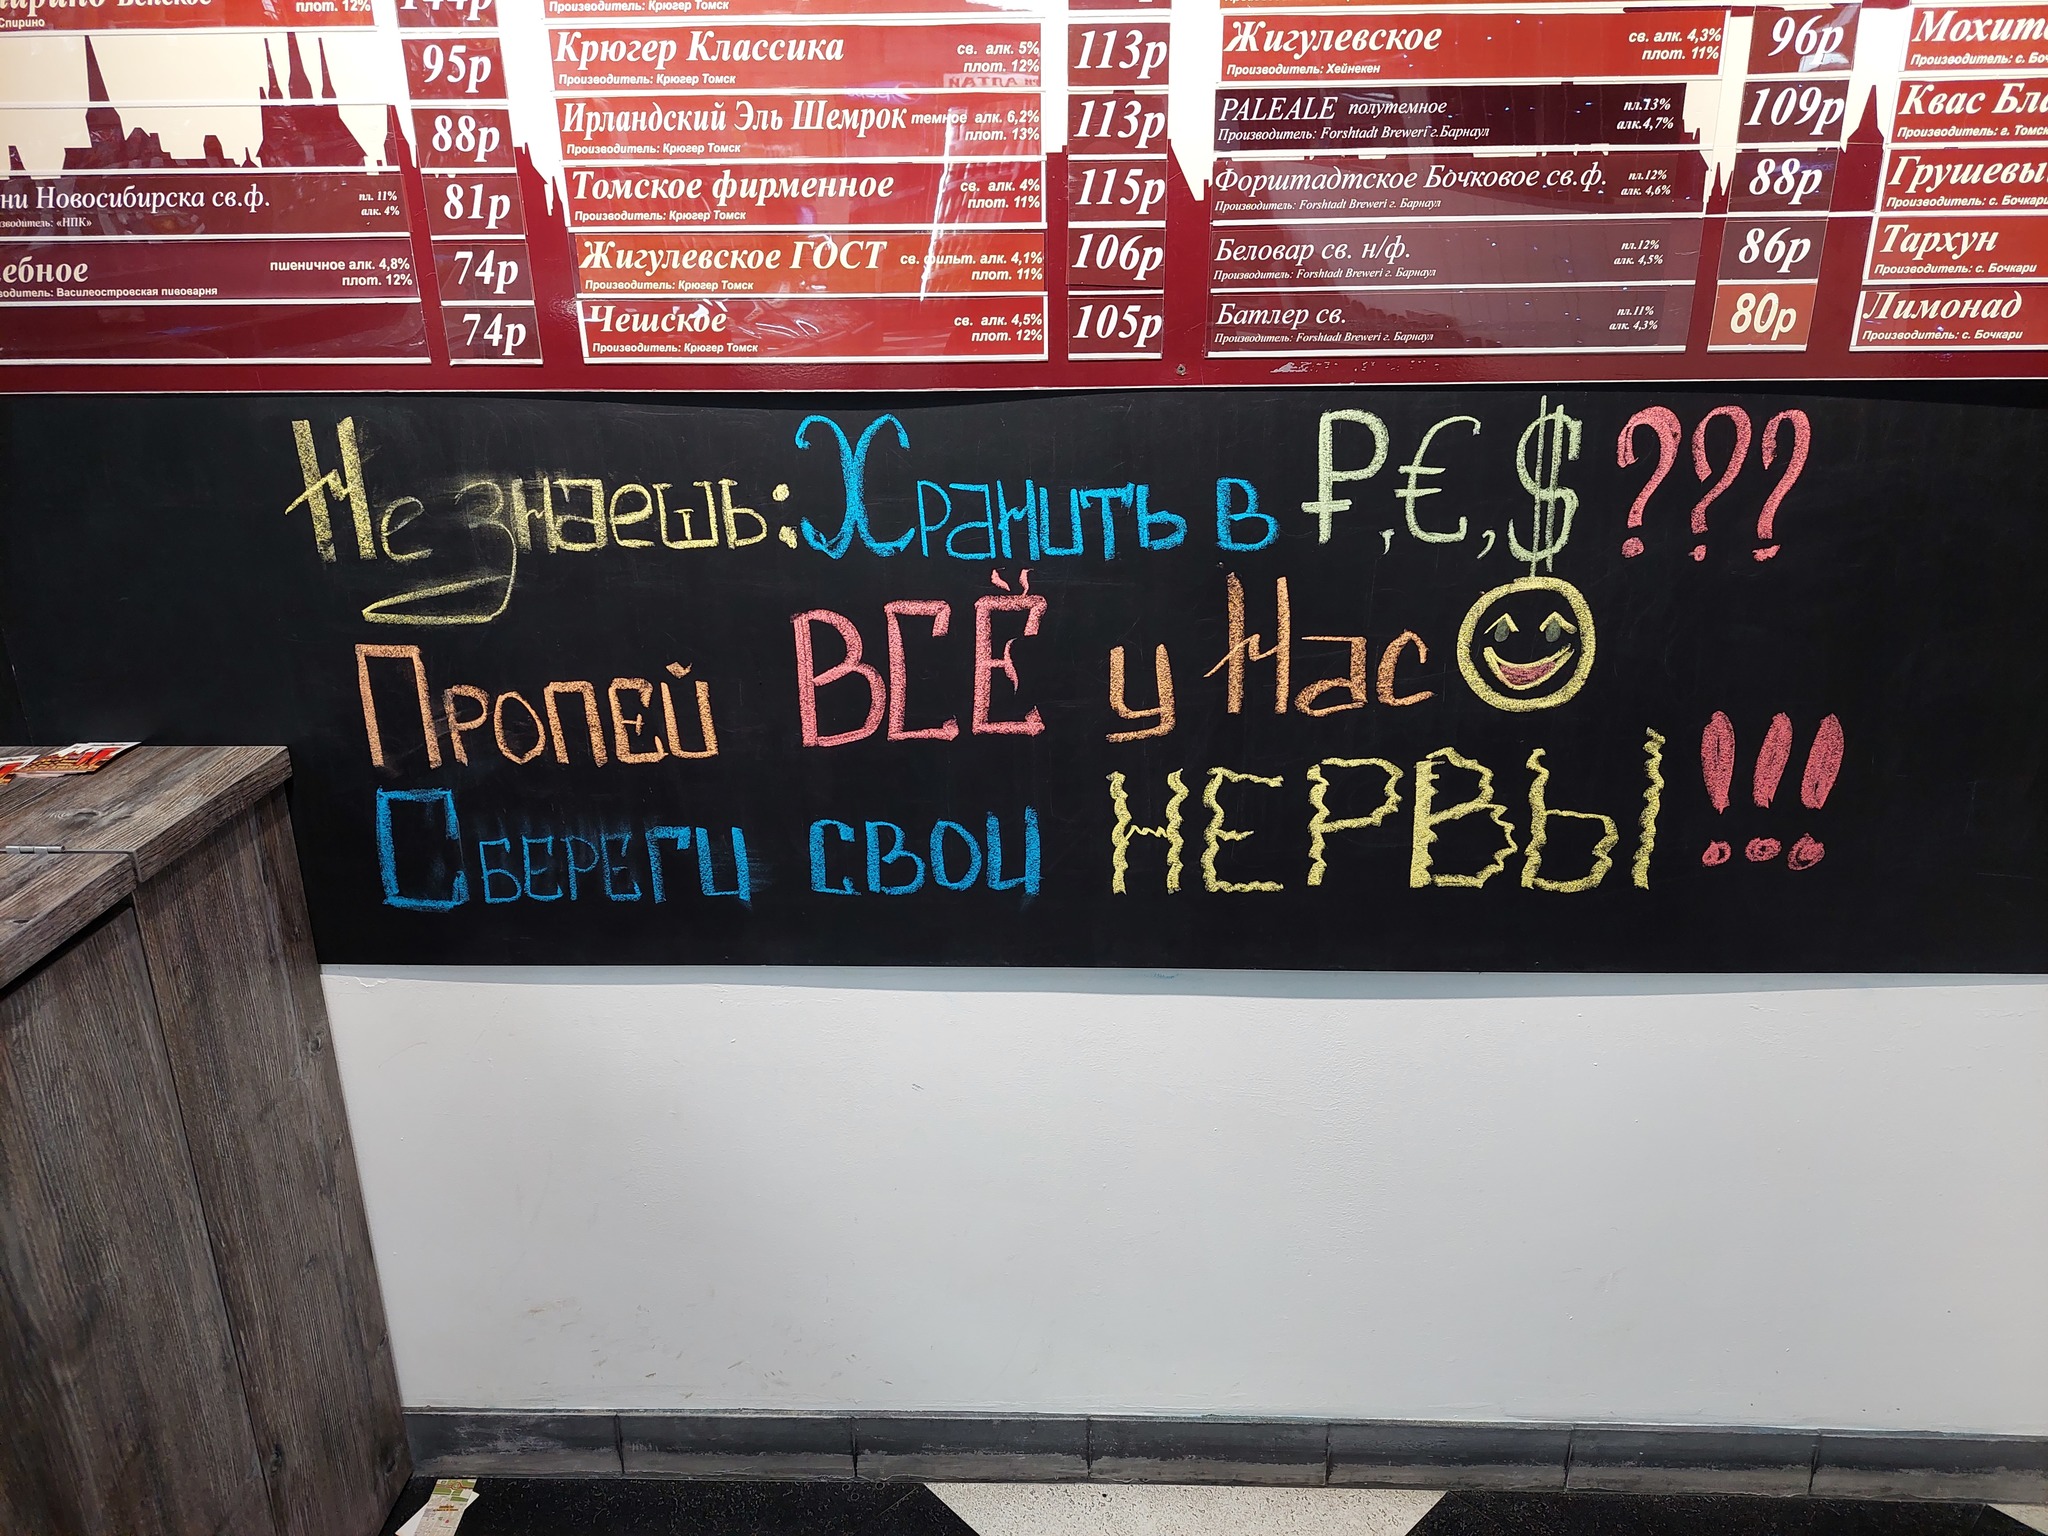 144р
плот. 12%
Спирино
95р
88р
Новосибирска св.ф.
пл. 11%
алк. 4%
81р
«НПК»
пшеничное алк. 4,8%
плот. 12%
74р
Василеостровская пивоварня
74р
Производитель: Крюгер Томск
Крюгер Классика
св. алк. 5%
плот. 12%
113р
Производитель: Крюгер Томск
Ирландский Эль Шемрок
темное алк. 6,2%
плот. 13%
113р
Производитель: Крюгер Томск
Томское фирменное
св. алк. 4%
плот. 11%
115р
Производитель: Крюгер Томск
Жигулевское ГОСТ
св. фильт. алк. 4,1%
плот. 11%
106р
Производитель: Крюгер Томск
Чешское
св. алк. 4,5%
плот. 12%
105р
Производитель: Крюгер Томск
Жигулевское
св. алк. 4,3%
плот. 11%
96р
Производитель: Хейнекен
PALEALE полутемное
пл.13%
алк.4,7%
109р
Производитель: Forshtadt Breweri г.Барнаул
Форштадтское Бочковое св.ф.
пл.12%
алк. 4,6%
88р
Производитель: Forshtadt Breweri г. Барнаул
Беловар св. н/ф.
пл.12%
алк. 4,5%
86р
Производитель: Forshtadt Breweri г. Барнаул
Батлер св.
пл.11%
алк. 4,3%
80р
Производитель: Forshtadt Breweri г. Барнаул
Производитель: с.
Квас
Производитель: г. Томск
Производитель: с. Бочкари
Тархун
Производитель: с. Бочкари
Лимонад
Производитель: с. Бочкари
Не знаешь: Хранить в ₽, €, $ ???
Пропей ВСЁ у Нас
Сбереги свои НЕРВЫ!!!